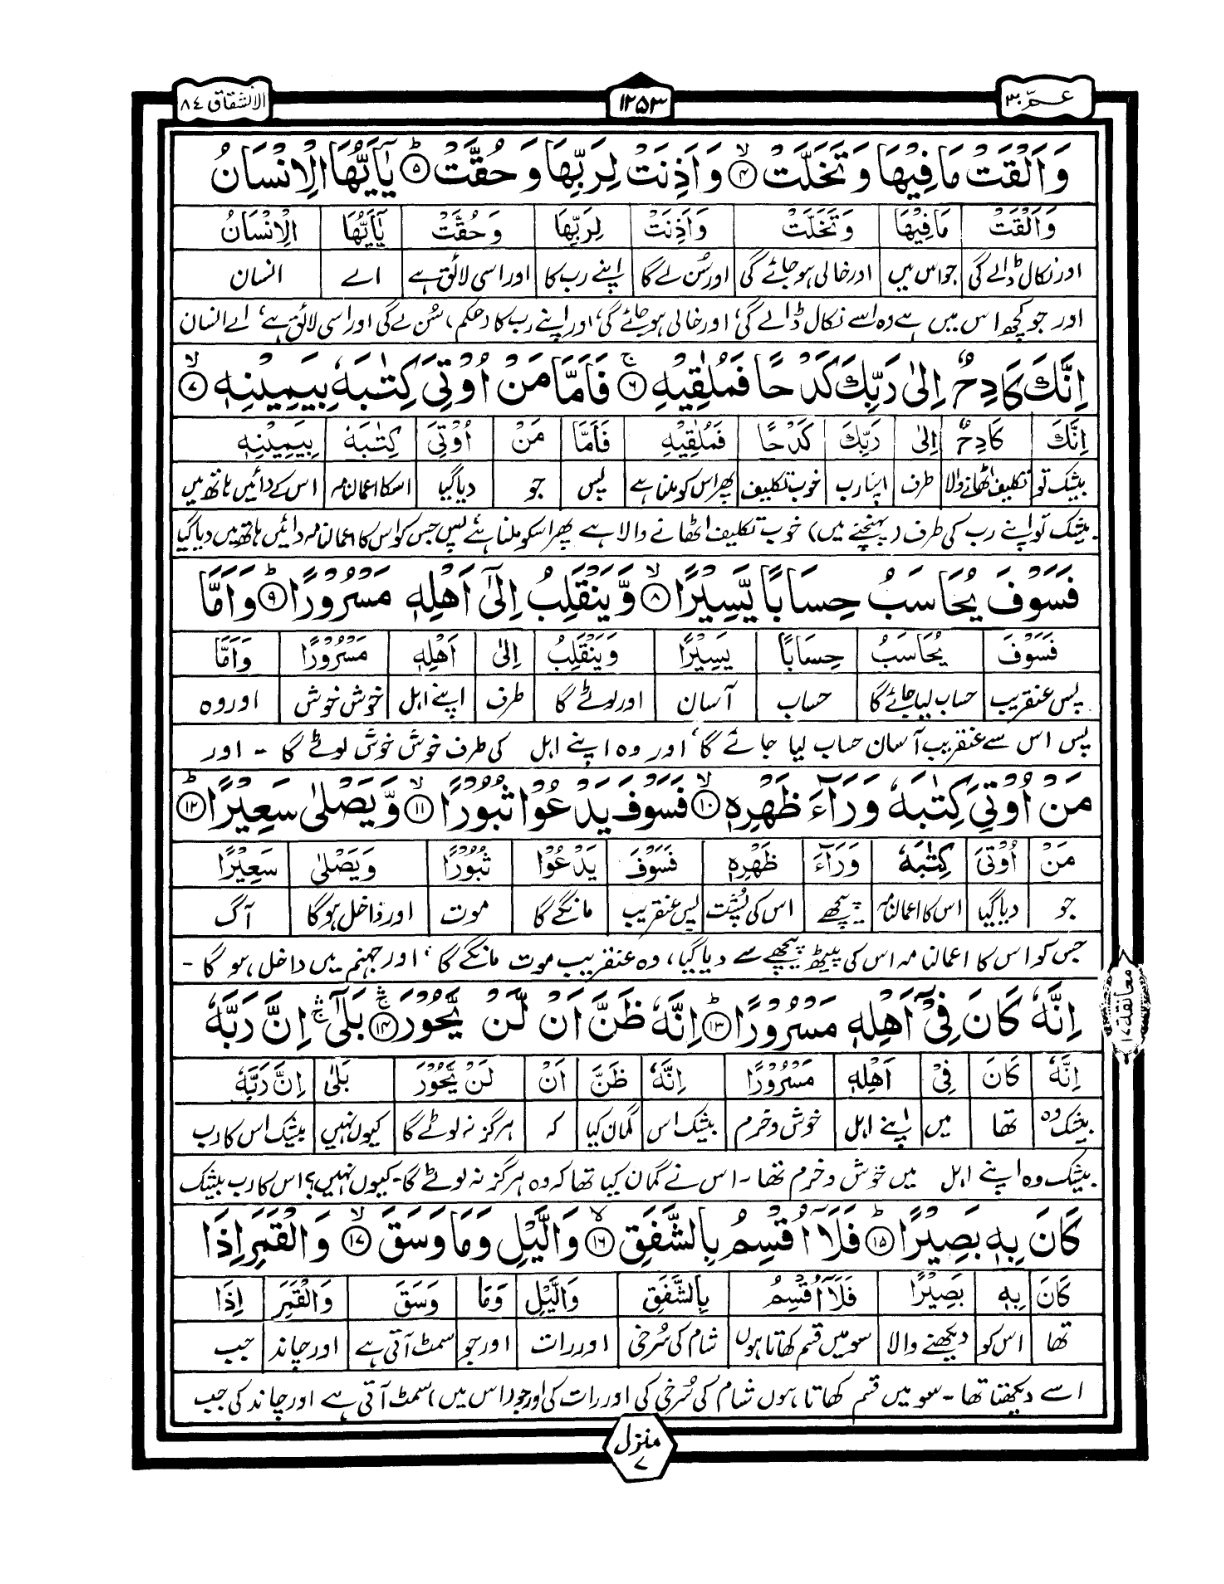 عـــمّ ٣٠
١٢٥٣
الانشقاق ٨٤
وَاَلْقَتْ مَا فِيْهَا وَتَخَلَّتْ ۙ﴿۴﴾ وَاَذِنَتْ لِرَبِّهَا وَحُقَّتْ ؕ﴿۵﴾ يٰۤاَيُّهَا الْاِنْسَانُ
وَاَلْقَتْ مَا فِيْهَا وَتَخَلَّتْ وَاَذِنَتْ لِرَبِّهَا وَحُقَّتْ يٰۤاَيُّهَا الْاِنْسَانُ
اور نکال ڈالے گی جو اس میں اور خالی ہو جائے گی اور سُن لے گا اپنے رب کا اور اسی لائق ہے اے انسان
اور جو کچھ اس میں ہے وہ اسے نکال ڈالے گی، اور خالی ہو جائے گی، اور اپنے رب کا (حکم) سُن لے گی اور اسی لائق ہے، اے انسان
اِنَّكَ كَادِحٌ اِلٰى رَبِّكَ كَدْحًا فَمُلٰقِيْهِ ۚ﴿۶﴾ فَاَمَّا مَنْ اُوْتِيَ كِتٰبَهٗ بِيَمِيْنِهٖ ۙ﴿۷﴾
اِنَّكَ كَادِحٌ اِلٰى رَبِّكَ كَدْحًا فَمُلٰقِيْهِ فَاَمَّا مَنْ اُوْتِيَ كِتٰبَهٗ بِيَمِيْنِهٖ
بیشک تو تکلیف اٹھانے والا طرف اپنا رب خوب تکلیف پھر اس کو ملنا ہے پس جو دیا گیا اسکا اعمالنامہ اس کے دائیں ہاتھ میں
بیشک تو اپنے رب کی طرف (پہنچنے میں) خوب تکلیف اٹھانے والا ہے پھر اسکو ملنا ہے پس جس کو اس کا اعمالنامہ دائیں ہاتھ میں دیا گیا
فَسَوْفَ يُحَاسَبُ حِسَابًا يَّسِيْرًا ۙ﴿۸﴾ وَّيَنْقَلِبُ اِلٰۤى اَهْلِهٖ مَسْرُوْرًا ؕ﴿۹﴾ وَاَمَّا
فَسَوْفَ يُحَاسَبُ حِسَابًا يَسِيْرًا وَيَنْقَلِبُ اِلٰى اَهْلِهٖ مَسْرُوْرًا وَاَمَّا
پس عنقریب حساب لیا جائے گا حساب آسان اور لوٹے گا طرف اپنے اہل خوش خوش اور وہ
پس اس سے عنقریب آسان حساب لیا جائے گا، اور وہ اپنے اہل کی طرف خوش خوش لوٹے گا - اور
مَنْ اُوْتِيَ كِتٰبَهٗ وَرَآءَ ظَهْرِهٖ ۙ﴿۱۰﴾ فَسَوْفَ يَدْعُوْا ثُبُوْرًا ۙ﴿۱۱﴾ وَّيَصْلٰى سَعِيْرًا ؕ﴿۱۲﴾
مَنْ اُوْتِيَ كِتٰبَهٗ وَرَآءَ ظَهْرِهٖ فَسَوْفَ يَدْعُوْا ثُبُوْرًا وَيَصْلٰى سَعِيْرًا
جو دیا گیا اس کا اعمالنامہ پیچھے اس کی پُشت پس عنقریب مانگے گا موت اور داخل ہو گا آگ
جس کو اس کا اعمالنامہ اس کی پیٹھ پیچھے سے دیا گیا، وہ عنقریب موت مانگے گا، اور جہنم میں داخل ہو گا -
معانقة ١٧
اِنَّهٗ كَانَ فِيْۤ اَهْلِهٖ مَسْرُوْرًا ؕ﴿۱۳﴾ اِنَّهٗ ظَنَّ اَنْ لَّنْ يَّحُوْرَ ۚۛ﴿۱۴﴾ بَلٰۤى ۚۛ اِنَّ رَبَّهٗ
اِنَّهٗ كَانَ فِيْ اَهْلِهٖ مَسْرُوْرًا اِنَّهٗ ظَنَّ اَنْ لَنْ يَّحُوْرَ بَلٰى اِنَّ رَبَّهٗ
بیشک وہ تھا میں اپنے اہل خوش و خرم بیشک اس گمان کیا کہ ہرگز نہ لوٹے گا کیوں نہیں بیشک اس کا رب
بیشک وہ اپنے اہل میں خوش و خرم تھا - اس نے گمان کیا تھا کہ وہ ہرگز نہ لوٹے گا - کیوں نہیں؟ اس کا رب بیشک
كَانَ بِهٖ بَصِيْرًا ؕ﴿۱۵﴾ فَلَاۤ اُقْسِمُ بِالشَّفَقِ ۙ﴿۱۶﴾ وَالَّيْلِ وَمَا وَسَقَ ۙ﴿۱۷﴾ وَالْقَمَرِ اِذَا
كَانَ بِهٖ بَصِيْرًا فَلَاۤ اُقْسِمُ بِالشَّفَقِ وَالَّيْلِ وَمَا وَسَقَ وَالْقَمَرِ اِذَا
تھا اس کو دیکھنے والا سو میں قسم کھاتا ہوں شام کی سُرخی اور رات اور جو سمٹ آتی ہے اور چاند جب
اسے دیکھتا تھا - سو میں قسم کھاتا ہوں شام کی سُرخی کی اور رات کی اور جو (اس میں) سمٹ آتی ہے اور چاند کی جب
منزل ٧